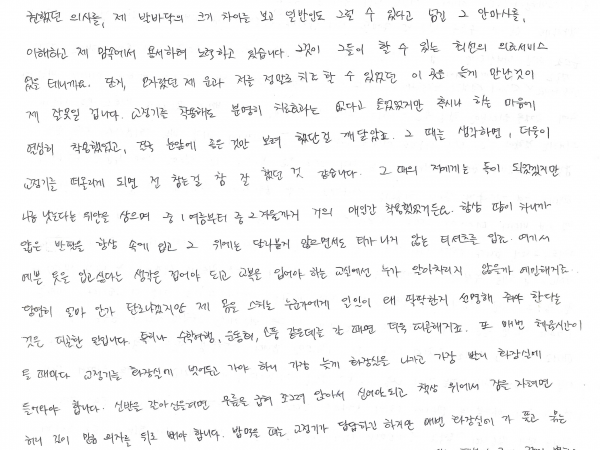 했던 의사를, 제 발바닥의 크기 차이는 보고 일반인도 그럴 수 있다고 넘긴 그 안마사를,
이해하고 제 맘속에서 용서하려 노력하고 있습니다. 그것이 그들이 할 수 있는 최선의 의료서비스
였을 테니까요. 단지, 모자랐던 제 운과 저를 정말로 치료할 수 있었던 이 곳을 늦게 만난것이
제 잘못일 겁니다. 교정기는 착용해도 분명히 치료효과는 없다고 들었었지만 혹시나 하는 마음에
열심히 착용했었고, 전국 눈앞에 좋은 것만 보려 했단걸 깨달았죠. 그 때를 생각하면, 더욱이
교정기를 떠올리게 되면 전 참는걸 참 잘 했던 것 같습니다. 그 때의 저에게는 독이 되었겠지만
나을 낫는다는 위안을 삼으며 중1 여름부터 중2 겨울까지 거의 매일간 착용했었거든요. 항상 땀이 차니까
얇은 반팔을 항상 속에 입고 그 위에는 달라붙지 않으면서도 티가 나지 않는 티셔츠를 입죠. 여기서
예쁜 옷을 입고싶다는 생각은 접어야 되고 교복을 입어야 하는 교실에선 누가 알아차리지 않을까 예민해지죠.
당연히 얼마 안가 탄로나겠지만 제 몸을 스치는 누군가에게 일일이 왜 딱딱한지 설명해 줘야 한다는
것은 피곤한 일입니다. 특히나 수학여행, 운동회, 소풍 같은데를 갈 때면 더욱 피곤해지죠. 또 매번 체육시간이
될 때마다 교정기를 화장실에 벗어두고 가야 하니 가장 늦게 화장실을 나가고 가장 빨리 화장실에
들어와야 합니다. 신발을 갈아신을려면 무릎을 굽혀 쪼그려 앉아서 신어야되고 책상 위에서 잠을 자려면
허리 깊이 만큼 의자를 뒤로 빼야 합니다. 밥먹을 때는 교정기가 답답하긴 하지만 매번 화장실에 가 풀고 오는